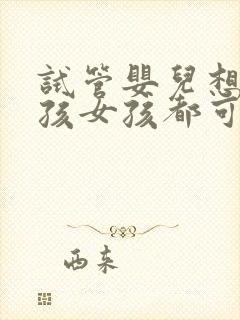 試管嬰兒想
孩女孩都可
西来